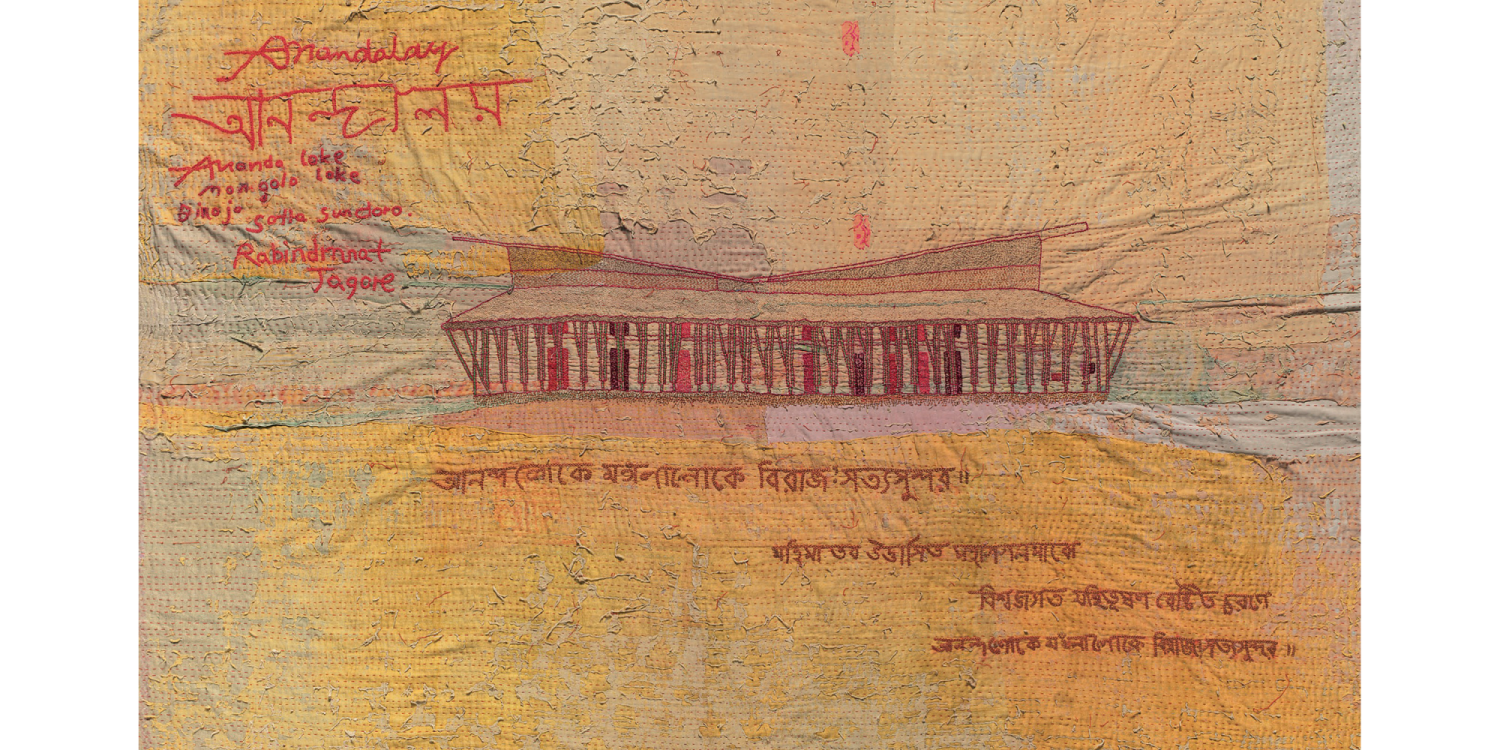 Anandalay
আনন্দালয়
Ananda loke
mongolo loke
Birajo
Sotta Sundoro.
Rabindrnnat
Tagore
আনন্দলোকে মঙ্গলালোকে বিরাজ সত্যসুন্দর॥
মহিমা তব উদ্ভাসিত মহাগগনমাঝে
বিশ্বজগত মণিভূষণ বেষ্টিত চরণে
আনন্দলোকে মঙ্গলালোকে বিরাজ সত্যসুন্দর॥